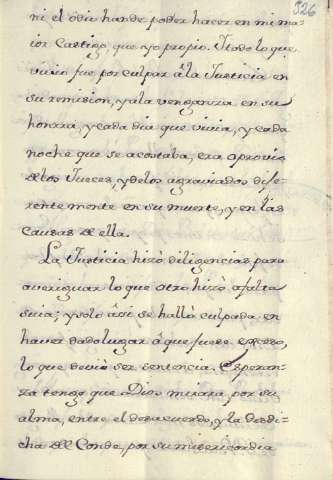 326
ni el ódio hande poder hacer en mi ma-
ior Castigo, que yo propio. Itodo lo que
vivio fue por culpar á la Justicia en
su remision, y ala venganza en su
honrra, y cada dia que vivia, y cada
noche que se acostaba, era oprovio
delos Jueces, y delos agraviados dife-
rentemente en su muerte, y en las
causas de ella.
La Justicia hizo diligencias para
averiguar lo que otro hizo afalta
suia; y solo ási se halló culpada en
haver dado lugar á que fuese exceso,
lo que devió ser sentencia. Esperan-
za tengo que Dios mirara por su
alma, entre el desacuerdo, y la desdi-
cha del Conde, por su misericordia